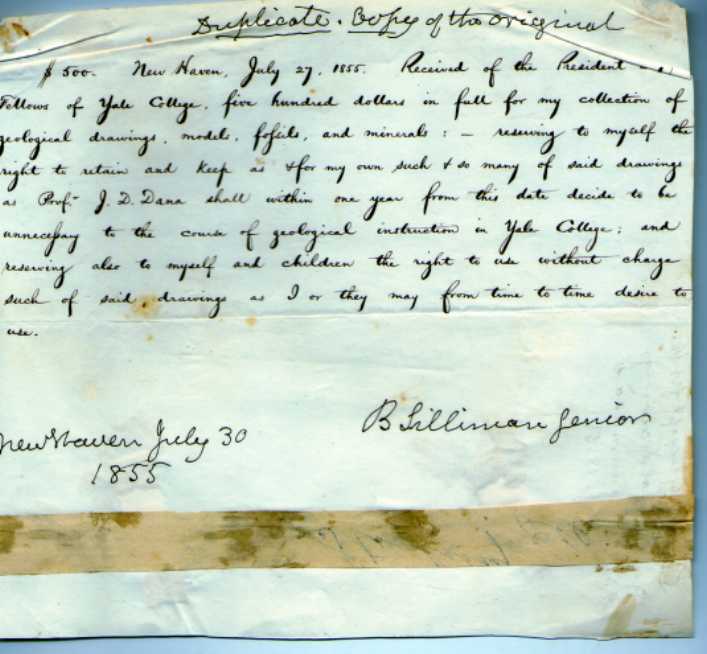 Duplicate. Copy of the original
$500. New Haven, July 27, 1855. Received of the President
Fellows of Yale College, five hundred dollars in full for my collection of
geological drawings, models, fossils, and minerals: — reserving to myself the
right to retain and keep as & for my own such & so many of said drawings
as Prof. J. D. Dana shall within one year from this date decide to be
unnecessary to the course of geological instruction in Yale College; and
reserving also to myself and children the right to use without charge
such of said drawings as I or they may from time to time desire to
use.
B Silliman Senior
New Haven July 30
1855